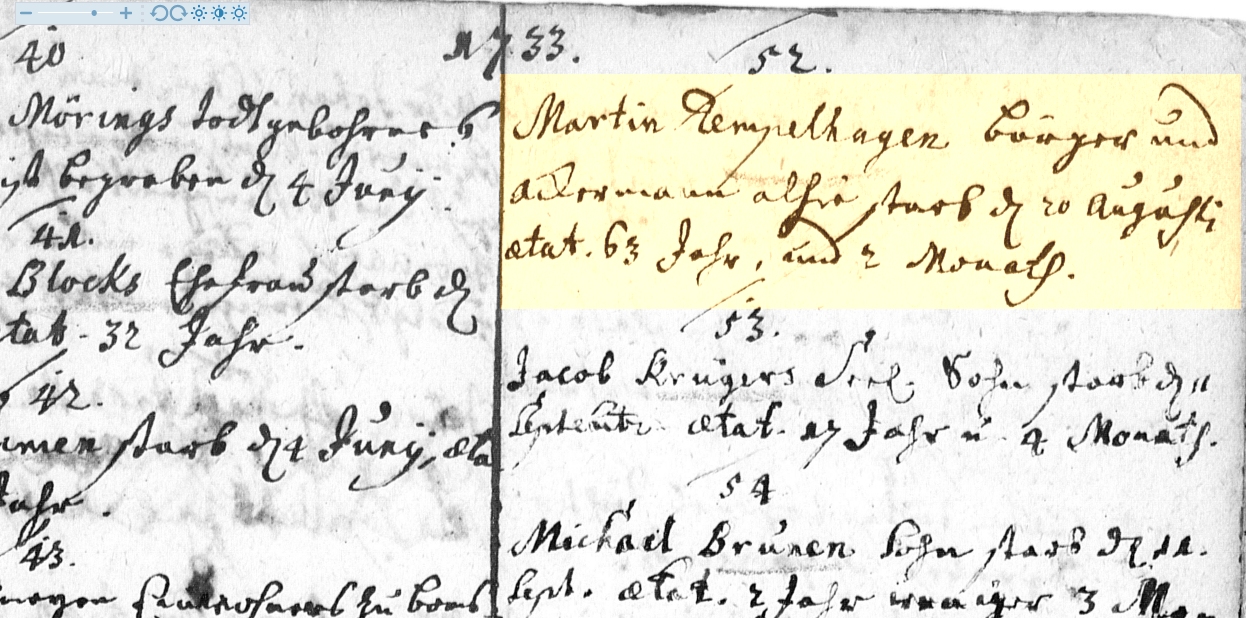 1733.
40
Mörings todtgebohrnes
ist begraben d 4 Junij
41.
Blocks Ehefrau starb d
tat. 32 Jahr.
42.
starb d 4 Junij, æta
Jahr.
43.
Einwohners zu
52.
Martin Rempelhagen bürger und
ackermann alhie starb d 20 Augusti
ætat. 63 Jahr, und 2 Monath.
53.
Jacob Krügers Seel. Sohn starb d 11
Septembr. ætat. 17 Jahr u. 4 Monath.
54
Michael Brunen Sohn starb d 11.
Sept. ætat. 2 Jahr weniger 3 Mon